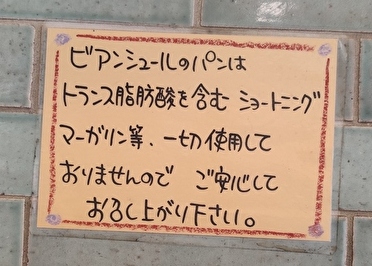 ビアンシュールのパンは
トランス脂肪酸を含む ショートニング
マーガリン等、一切使用して
おりませんので ご安心して
お召し上がり下さい。